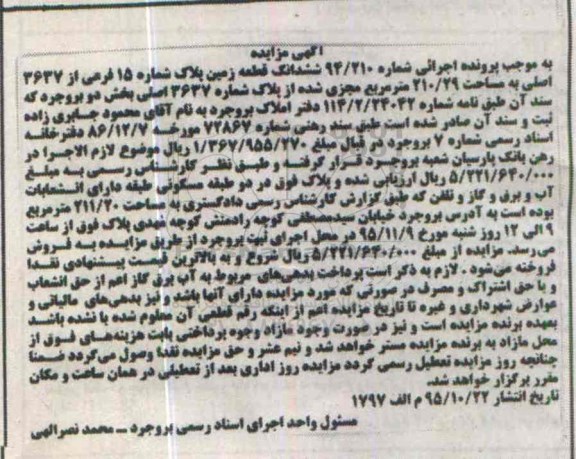 آگهی مزایده
به موجب پرونده اجرائی شماره ۹۴/۲۱۰ ششدانگ قطعه زمین پلاک شماره ۱۵ فرعی از ۳۶۳۷
اصلی به مساحت ۲۱۰/۲۹ مترمربع مجزی شده از پلاک شماره ۳۶۳۷ اصلی بخش دو بروجرد که
سند آن طبق نامه شماره ۱۱۴/۲/۲۴۰۴۲ دفتر املاک بروجرد به نام آقای محمود جابری زاده
ثبت و سند آن صادر شده است طبق سند رهنی شماره ۷۲۸۶۷ مورخه ۸۶/۱۲/۷ دفترخانه
اسناد رسمی شماره ۷ بروجرد در قبال مبلغ ۱/۳۶۷/۹۵۵/۲۷۰ ریال موضوع لازم الاجرا در
رهن بانک پارسیان شعبه بروجرد قرار گرفته و طبق نظر کارشناس رسمی به مبلغ
۵/۲۲۱/۶۴۰/۰۰۰ ریال ارزیابی شده و پلاک فوق در دو طبقه مسکونی طبقه دارای انشعابات
آب و برق و گاز و تلفن که طبق گزارش کارشناس رسمی دادگستری به مساحت ۲۱۱/۲۰ مترمربع
بوده است به آدرس بروجرد خیابان سیدمصطفی کوچه رادمنش کوچه شهدی پلاک فوق از ساعت
۹ الی ۱۲ روز شنبه مورخ ۹۵/۱۱/۹ در محل اجرای ثبت بروجرد از طریق مزایده به فروش
می‌رسد. مزایده از مبلغ ۵/۲۲۱/۶۴۰/۰۰۰ ریال شروع و به بالاترین قیمت پیشنهادی نقدا
فروخته می‌شود. لازم به ذکر است پرداخت بدهی‌های مربوط به آب برق گاز اعم از حق انشعاب
و یا حق اشتراک و مصرف در صورتی که مورد مزایده دارای آنها باشد و نیز بدهی‌های مالیاتی و
عوارض شهرداری و غیره تا تاریخ مزایده اعم از اینکه رقم قطعی آن معلوم شده یا نشده باشد
بعهده برنده مزایده است و نیز در صورت وجود مازاد وجوه پرداختی بابت هزینه‌های فوق از
محل مازاد به برنده مزایده مستر خواهد شد و نیم عشر و حق مزایده نقدا وصول می‌گردد ضمنا
چنانچه روز مزایده تعطیل رسمی گردد مزایده روز اداری بعد از تعطیلی در همان ساعت و مکان
مقرر برگزار خواهد شد.
تاریخ انتشار ۹۵/۱۰/۲۲ م الف ۱۷۹۷
مسئول واحد اجرای اسناد رسمی بروجرد ــ محمد نصرالهی